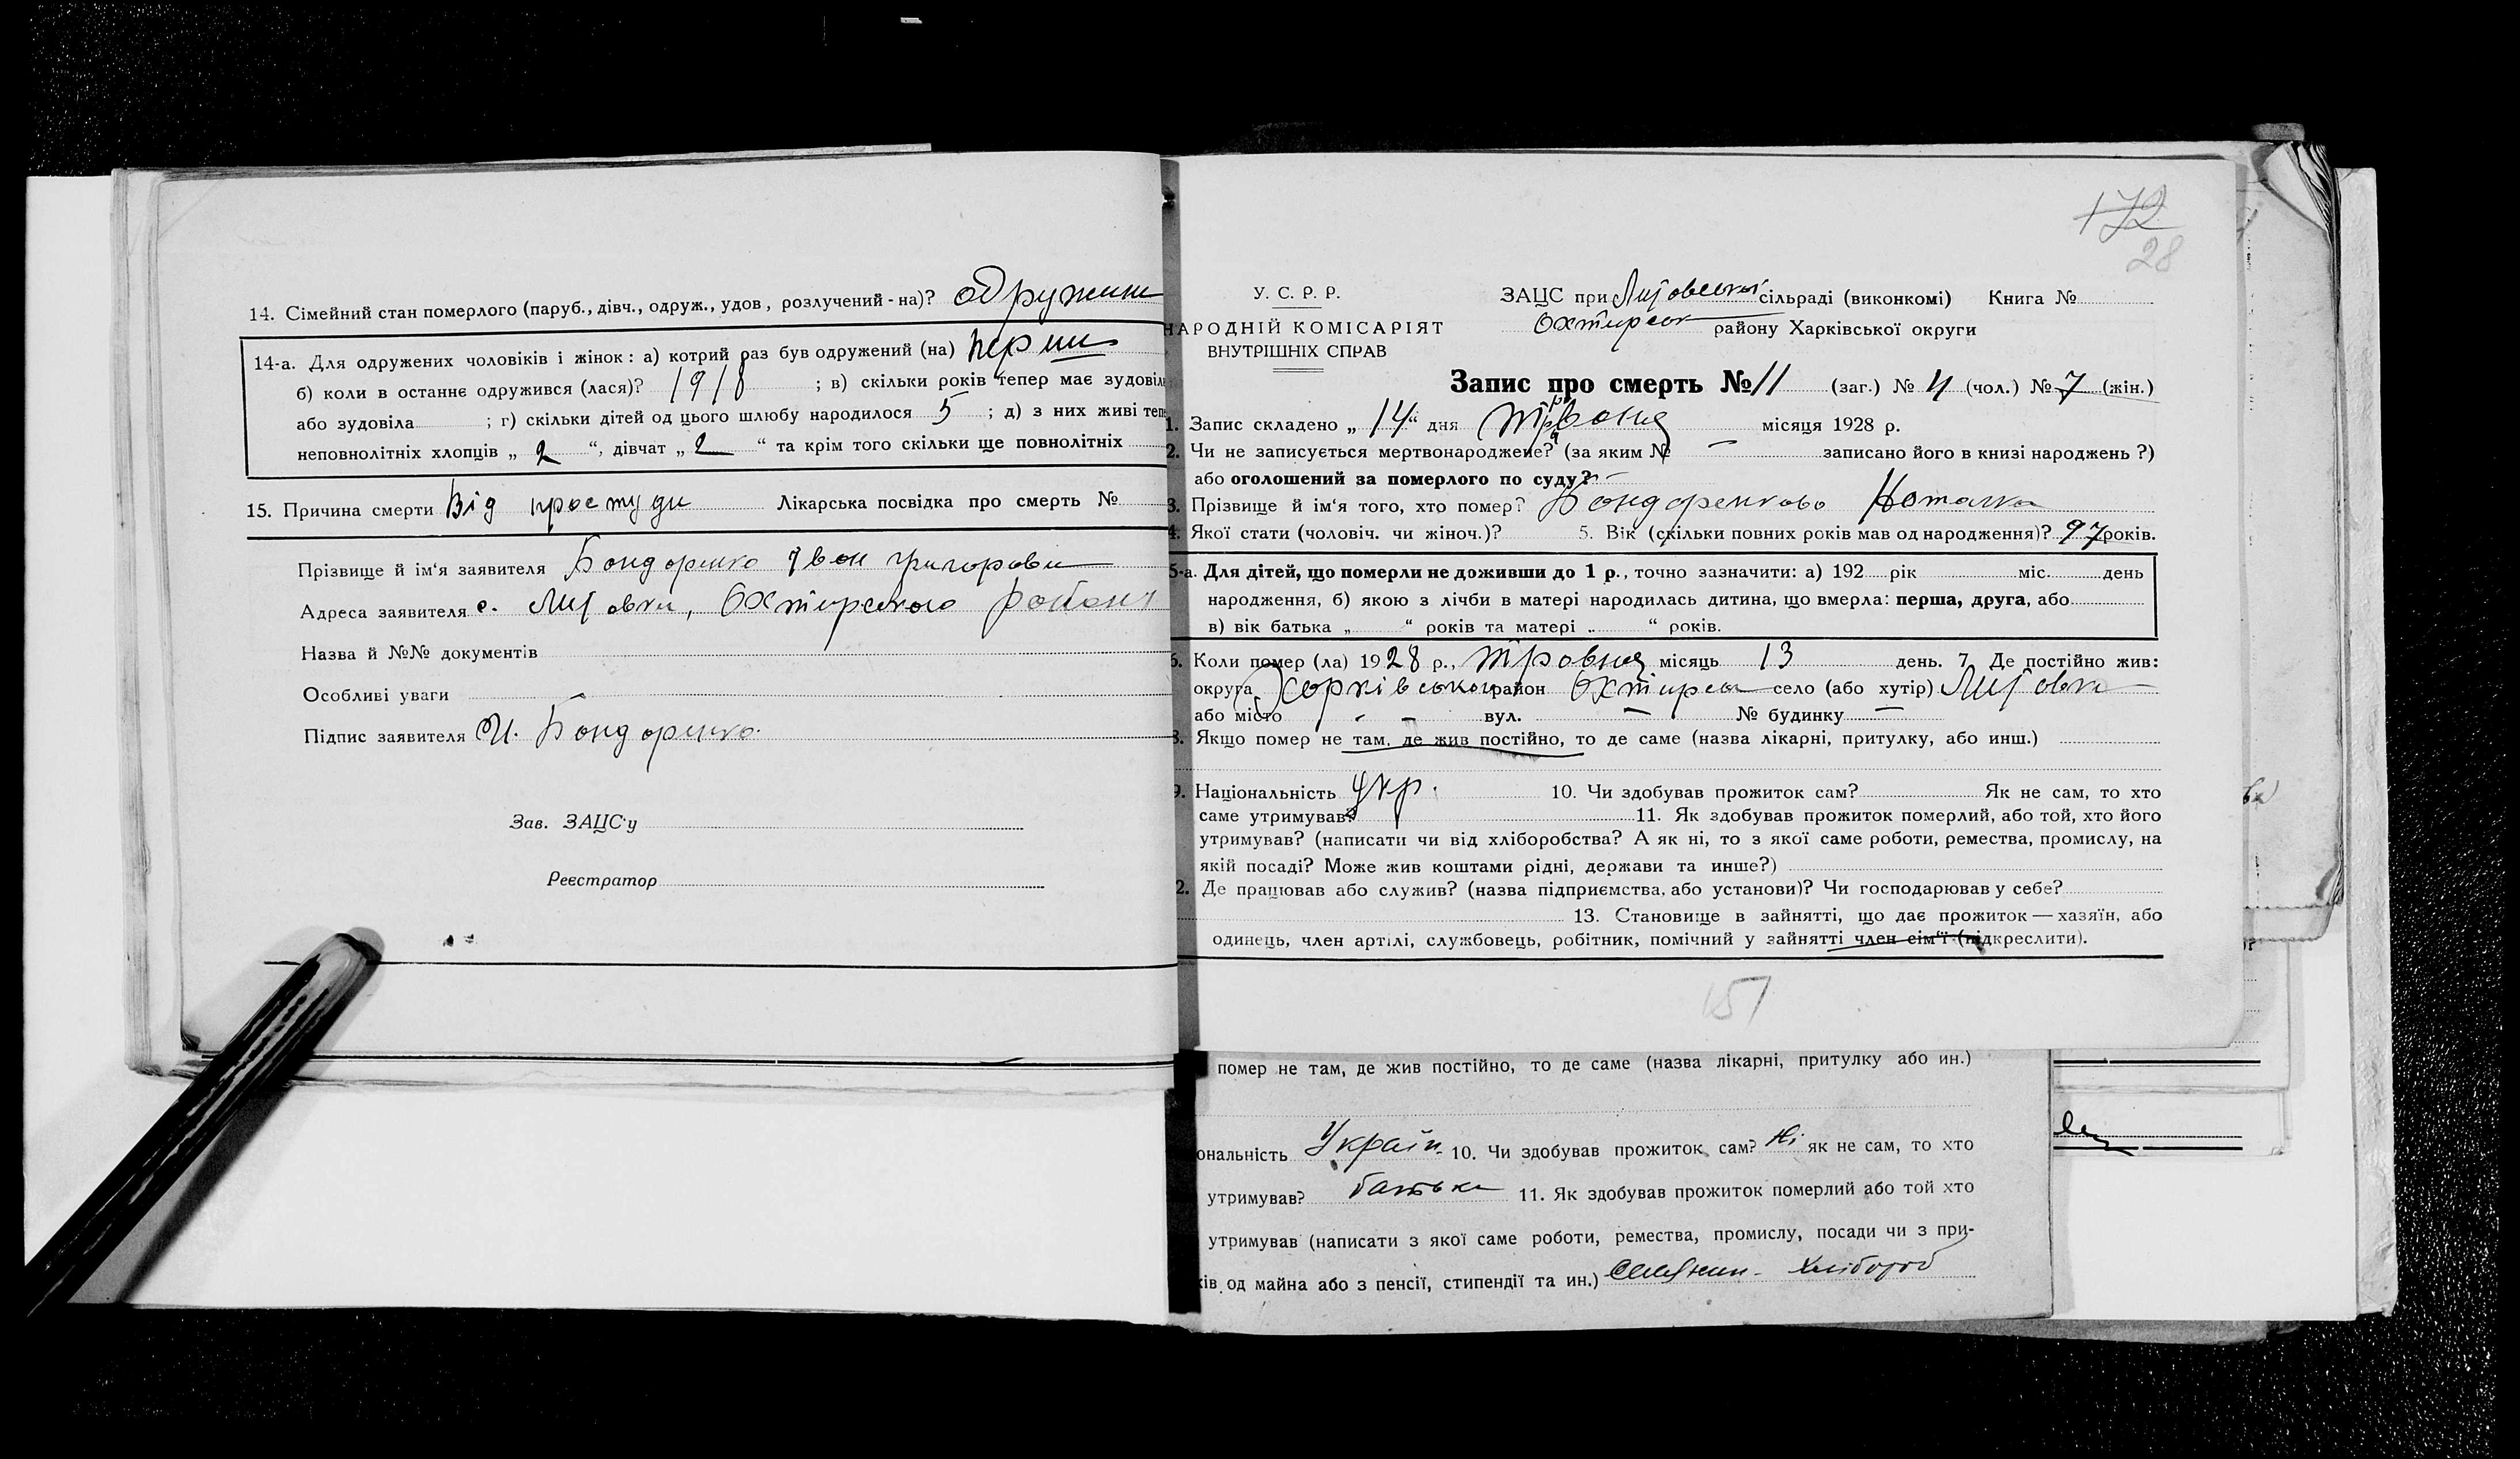 14. Сімейний стан померлого (паруб., дівч., одруж., удов, розлучений-на)? одружени
14-а. Для одружених чоловіків і жінок: а) котрий раз був одружений (на) перши
б) коли в останнє одружився (лася)? 1918 ; в) скільки років тепер має зудовіл
або зудовіла ; г) скільки дітей од цього шлюбу народилося 5 ; д) з них живі теп
неповнолітніх хлопців „ 2 “, дівчат „ 2 “ та крім того скільки ще повнолітніх
15. Причина смерти Від простуди Лікарська посвідка про смерть №
Прізвище й ім‘я заявителя Бондаренко Іван Григорови
Адреса заявителя с. Литовки, Охтирского району
Назва й №№ документів
Особливі уваги -
Підпис заявителя И. Бондаренко.
Зав. ЗАЦС‘у
Реєстратор
172
28
У. С. Р. Р.
НАРОДНІЙ КОМІСАРІЯТ
ВНУТРІШНІХ СПРАВ
ЗАЦС при Литовській сільраді (виконкомі) Книга №
Охтирськ району Харківської округи
Запис про смерть № 11 (заг.) № 4 (чол.) № 7 (жін.)
1. Запис складено „ 14 “ дня Травня місяця 1928 р.
2. Чи не записується мертвонароджене? (за яким № — записано його в книзі народжень ?)
або оголошений за померлого по суду? -
3. Прізвище й ім‘я того, хто помер? Бондаренкова Наталка
4. Якої стати (чоловіч. чи жіноч.)? 5. Вік (скільки повних років мав од народження)? 97 років.
5-а. Для дітей, що померли не доживши до 1 р., точно зазначити: а) 192 рік міс. день
народження, б) якою з лічби в матері народилась дитина, що вмерла: перша, друга, або
в) вік батька „ “ років та матері „ “ років.
6. Коли помер (ла) 1928 р., Травня місяць 13 день. 7 Де постійно жив:
округа Харківської район Охтирськ село (або хутір) Литовки
або місто - - вул. — № будинку —
8. Якщо помер не там, де жив постійно, то де саме (назва лікарні, притулку, або инш.)
9. Національність Укр. 10. Чи здобував прожиток сам? Як не сам, то хто
саме утримував? 11. Як здобував прожиток померлий, або той, хто його
утримував? (написати чи від хліборобства? А як ні, то з якої саме роботи, ремества, промислу, на
якій посаді? Може жив коштами рідні, держави та инше?)
2. Де працював або служив? (назва підприємства, або установи)? Чи господарював у себе?
13. Становище в зайнятті, що дає прожиток — хазяїн, або
одинець, член артілі, службовець, робітник, помічний у зайнятті член сім‘ї (підкреслити).
151
помер не там, де жив постійно, то де саме (назва лікарні, притулку або ин.)
ональність Україн. 10. Чи здобував прожиток сам? Ні як не сам, то хто
утримував? батьки 11. Як здобував прожиток померлий або той хто
утримував (написати з якої саме роботи, ремества, промислу, посади чи з при-
ків од майна або з пенсії, стипендії та ин.) Селянин - хлібороб